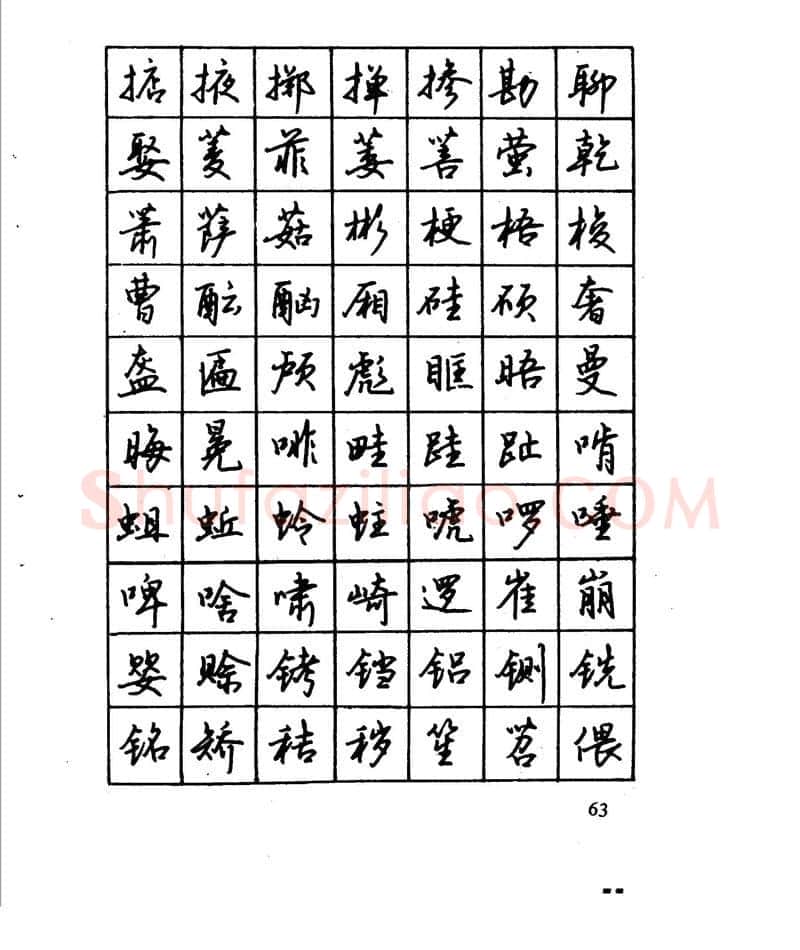 掂掖掷掸掺勘聊
娶菱菲萎菩萤乾
萧萨菇彬梗梧梭
曹酝酗厢硅硕奢
盔匾颅彪眶晤曼
晦冕啡畦跬趾啃
蛆蚯蛉蛀唬啰唾
啤啥啸崎逻崔崩
婴赊铐铛铝铡铣
铭矫秸秽笙笤偎
63
Shufaziliao.COM